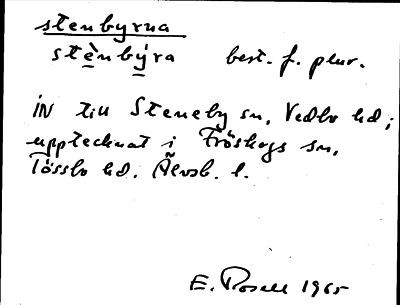 stenbyrna
stènbýra best. f. plur.
IN till Steneby sn, Vedbo hd;
upptecknat i Fröskogs sn,
Tössbo hd. Älvsb. l.
E. Rosell 1965